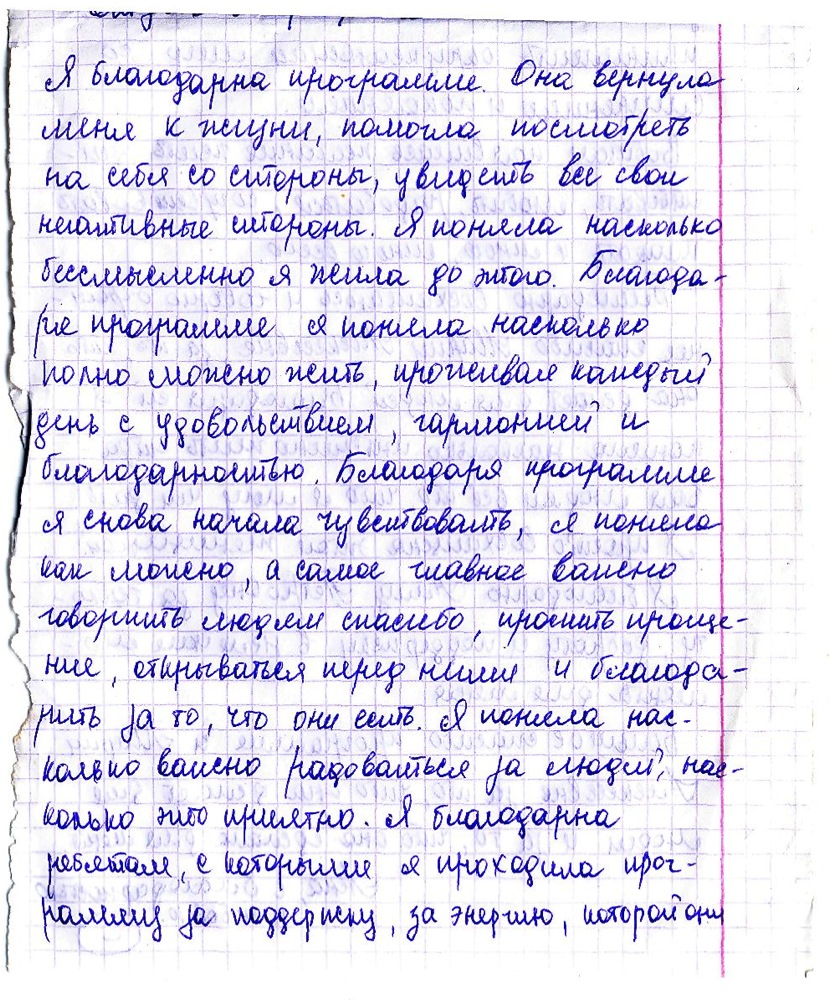 Я благодарна программе. Она вернула
меня к жизни, помогла посмотреть
на себя со стороны, увидеть все свои
негативные стороны. Я поняла насколько
бессмысленно я жила до этого. Благода-
ря программе я поняла насколько
полно можно жить, проживая каждый
день с удовольствием, гармонией и
благодарностью. Благодаря программе
я снова начала чувствовать, я поняла
как можно, а самое главное важно
говорить людям спасибо, просить проще-
ние, открываться перед ними и благода-
рить за то, что они есть. Я поняла нас-
колько важно радоваться за людей, нас-
колько это приятно. Я благодарна
ребятам, с которыми я проходила прог-
рамму за поддержку, за энергию, которой они